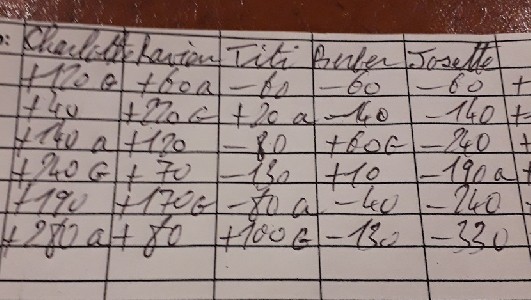 : Charlotte Marion Titi Berber Josette
+120 G +60 a -60 -60 -60 +
+40 +220 G +20 a -140 -140 +
+140 a +120 -80 +60 G -240 +
+240 G +70 -130 +10 -190 a +
+190 +170 G -80 a -40 -240
+280 a +80 +100 G -130 -330